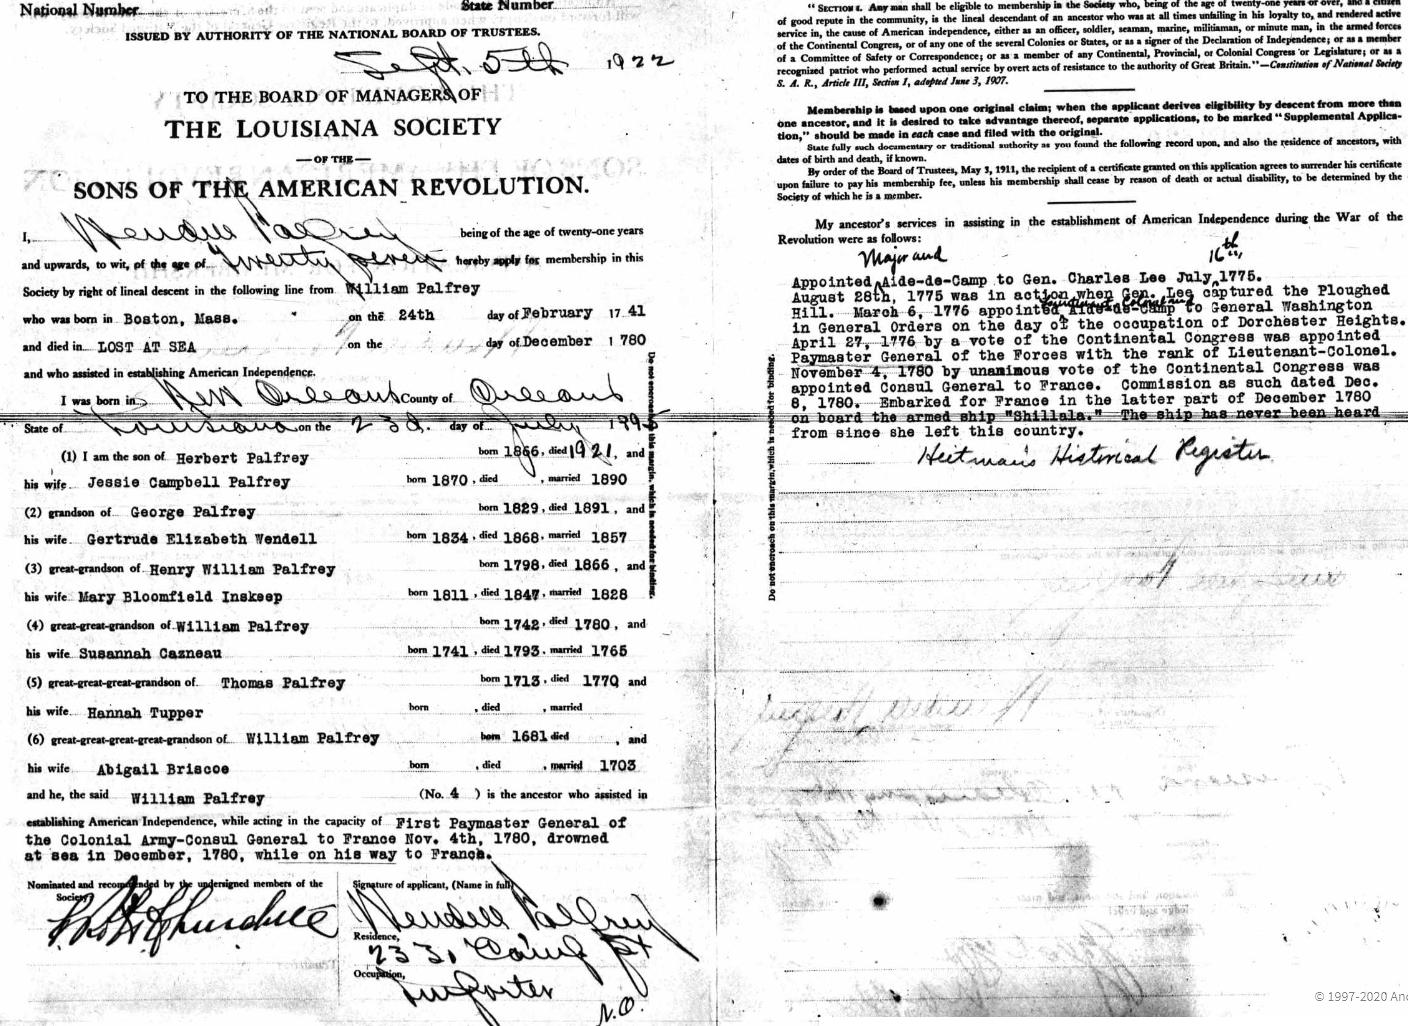 National Number
State Number
ISSUED BY AUTHORITY OF THE NATIONAL BOARD OF TRUSTEES.
Sept. 5th 1922
TO THE BOARD OF MANAGERS OF
THE LOUISIANA SOCIETY
—OF THE—
SONS OF THE AMERICAN REVOLUTION.
I, Wendell Palfrey being of the age of twenty-one years
and upwards, to wit, of the age of Twenty seven hereby apply for membership in this
Society by right of lineal descent in the following line from William Palfrey
who was born in Boston, Mass. on the 24th day of February 17 41
and died in LOST AT SEA on the day of December 1 780
and who assisted in establishing American Independence.
I was born in New Orleans County of Orleans
State of Louisiana on the 23d. day of July 1895
(1) I am the son of Herbert Palfrey born 1866, died 1921, and
his wife Jessie Campbell Palfrey born 1870, died , married 1890
(2) grandson of George Palfrey born 1829, died 1891, and
his wife Gertrude Elizabeth Wendell born 1834, died 1868, married 1857
(3) great-grandson of Henry William Palfrey born 1798, died 1866, and
his wife Mary Bloomfield Inskeep born 1811, died 1847, married 1828
(4) great-great-grandson of William Palfrey born 1742, died 1780, and
his wife Susannah Cazneau born 1741, died 1793, married 1765
(5) great-great-great-grandson of Thomas Palfrey born 1713, died 1770 and
his wife Hannah Tupper born , died , married
(6) great-great-great-great-grandson of William Palfrey born 1681 died , and
his wife Abigail Briscoe born , died , married 1703
and he, the said William Palfrey (No. 4 ) is the ancestor who assisted in
establishing American Independence, while acting in the capacity of First Paymaster General of
the Colonial Army-Consul General to France Nov. 4th, 1780, drowned
at sea in December, 1780, while on his way to France.
Nominated and recommended by the undersigned members of the
Society
Signature of applicant, (Name in full)
Wendell Palfrey
Residence,
233 Camp St
Occupation,
Importer
N.O.
Do not encroach on this margin, which is needed for binding.
" SECTION 1. Any man shall be eligible to membership in the Society who, being of the age of twenty-one years or over, and a citizen
of good repute in the community, is the lineal descendant of an ancestor who was at all times unfailing in his loyalty to, and rendered active
service in, the cause of American independence, either as an officer, soldier, seaman, marine, militiaman, or minute man, in the armed forces
of the Continental Congress, or of any one of the several Colonies or States, or as a signer of the Declaration of Independence; or as a member
of a Committee of Safety or Correspondence; or as a member of any Continental, Provincial, or Colonial Congress or Legislature; or as a
recognized patriot who performed actual service by overt acts of resistance to the authority of Great Britain."—Constitution of National Society
S. A. R., Article III, Section I, adopted June 3, 1907.
Membership is based upon one original claim; when the applicant derives eligibility by descent from more than
one ancestor, and it is desired to take advantage thereof, separate applications, to be marked "Supplemental Applica-
tion," should be made in each case and filed with the original.
State fully such documentary or traditional authority as you found the following record upon, and also the residence of ancestors, with
dates of birth and death, if known.
By order of the Board of Trustees, May 3, 1911, the recipient of a certificate granted on this application agrees to surrender his certificate
upon failure to pay his membership fee, unless his membership shall cease by reason of death or actual disability, to be determined by the
Society of which he is a member.
My ancestor's services in assisting in the establishment of American Independence during the War of the
Revolution were as follows:
Major and 16th
Appointed Aide-de-Camp to Gen. Charles Lee July, 1775.
August 28th, 1775 was in action when Gen. Lee captured the Ploughed
Lieutenant Colonel and
Hill. March 6, 1776 appointed Aide-de-Camp to General Washington
in General Orders on the day of the occupation of Dorchester Heights.
April 27, 1776 by a vote of the Continental Congress was appointed
Paymaster General of the Forces with the rank of Lieutenant-Colonel.
November 4, 1780 by unanimous vote of the Continental Congress was
appointed Consul General to France. Commission as such dated Dec.
8, 1780. Embarked for France in the latter part of December 1780
on board the armed ship "Shillala." The ship has never been heard
from since she left this country.
Heitman's Historical Register
Do not encroach on this margin, which is needed for binding.
© 1997-2020 Anc